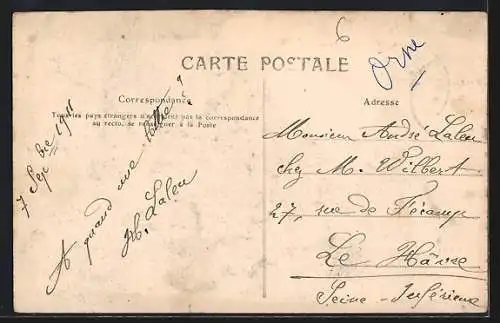 6
Orne
CARTE POSTALE
Correspondance
Tous les pays étrangers n'acceptent pas la correspondance
au recto, se renseigner à la Poste
Adresse
7 Sepbre 1911
A quand une lettre ?
Ph. Laleu
Monsieur André Laleu
chez M. Wilbert
27, rue de Fécamp
Le Hâvre
Seine-Inférieure